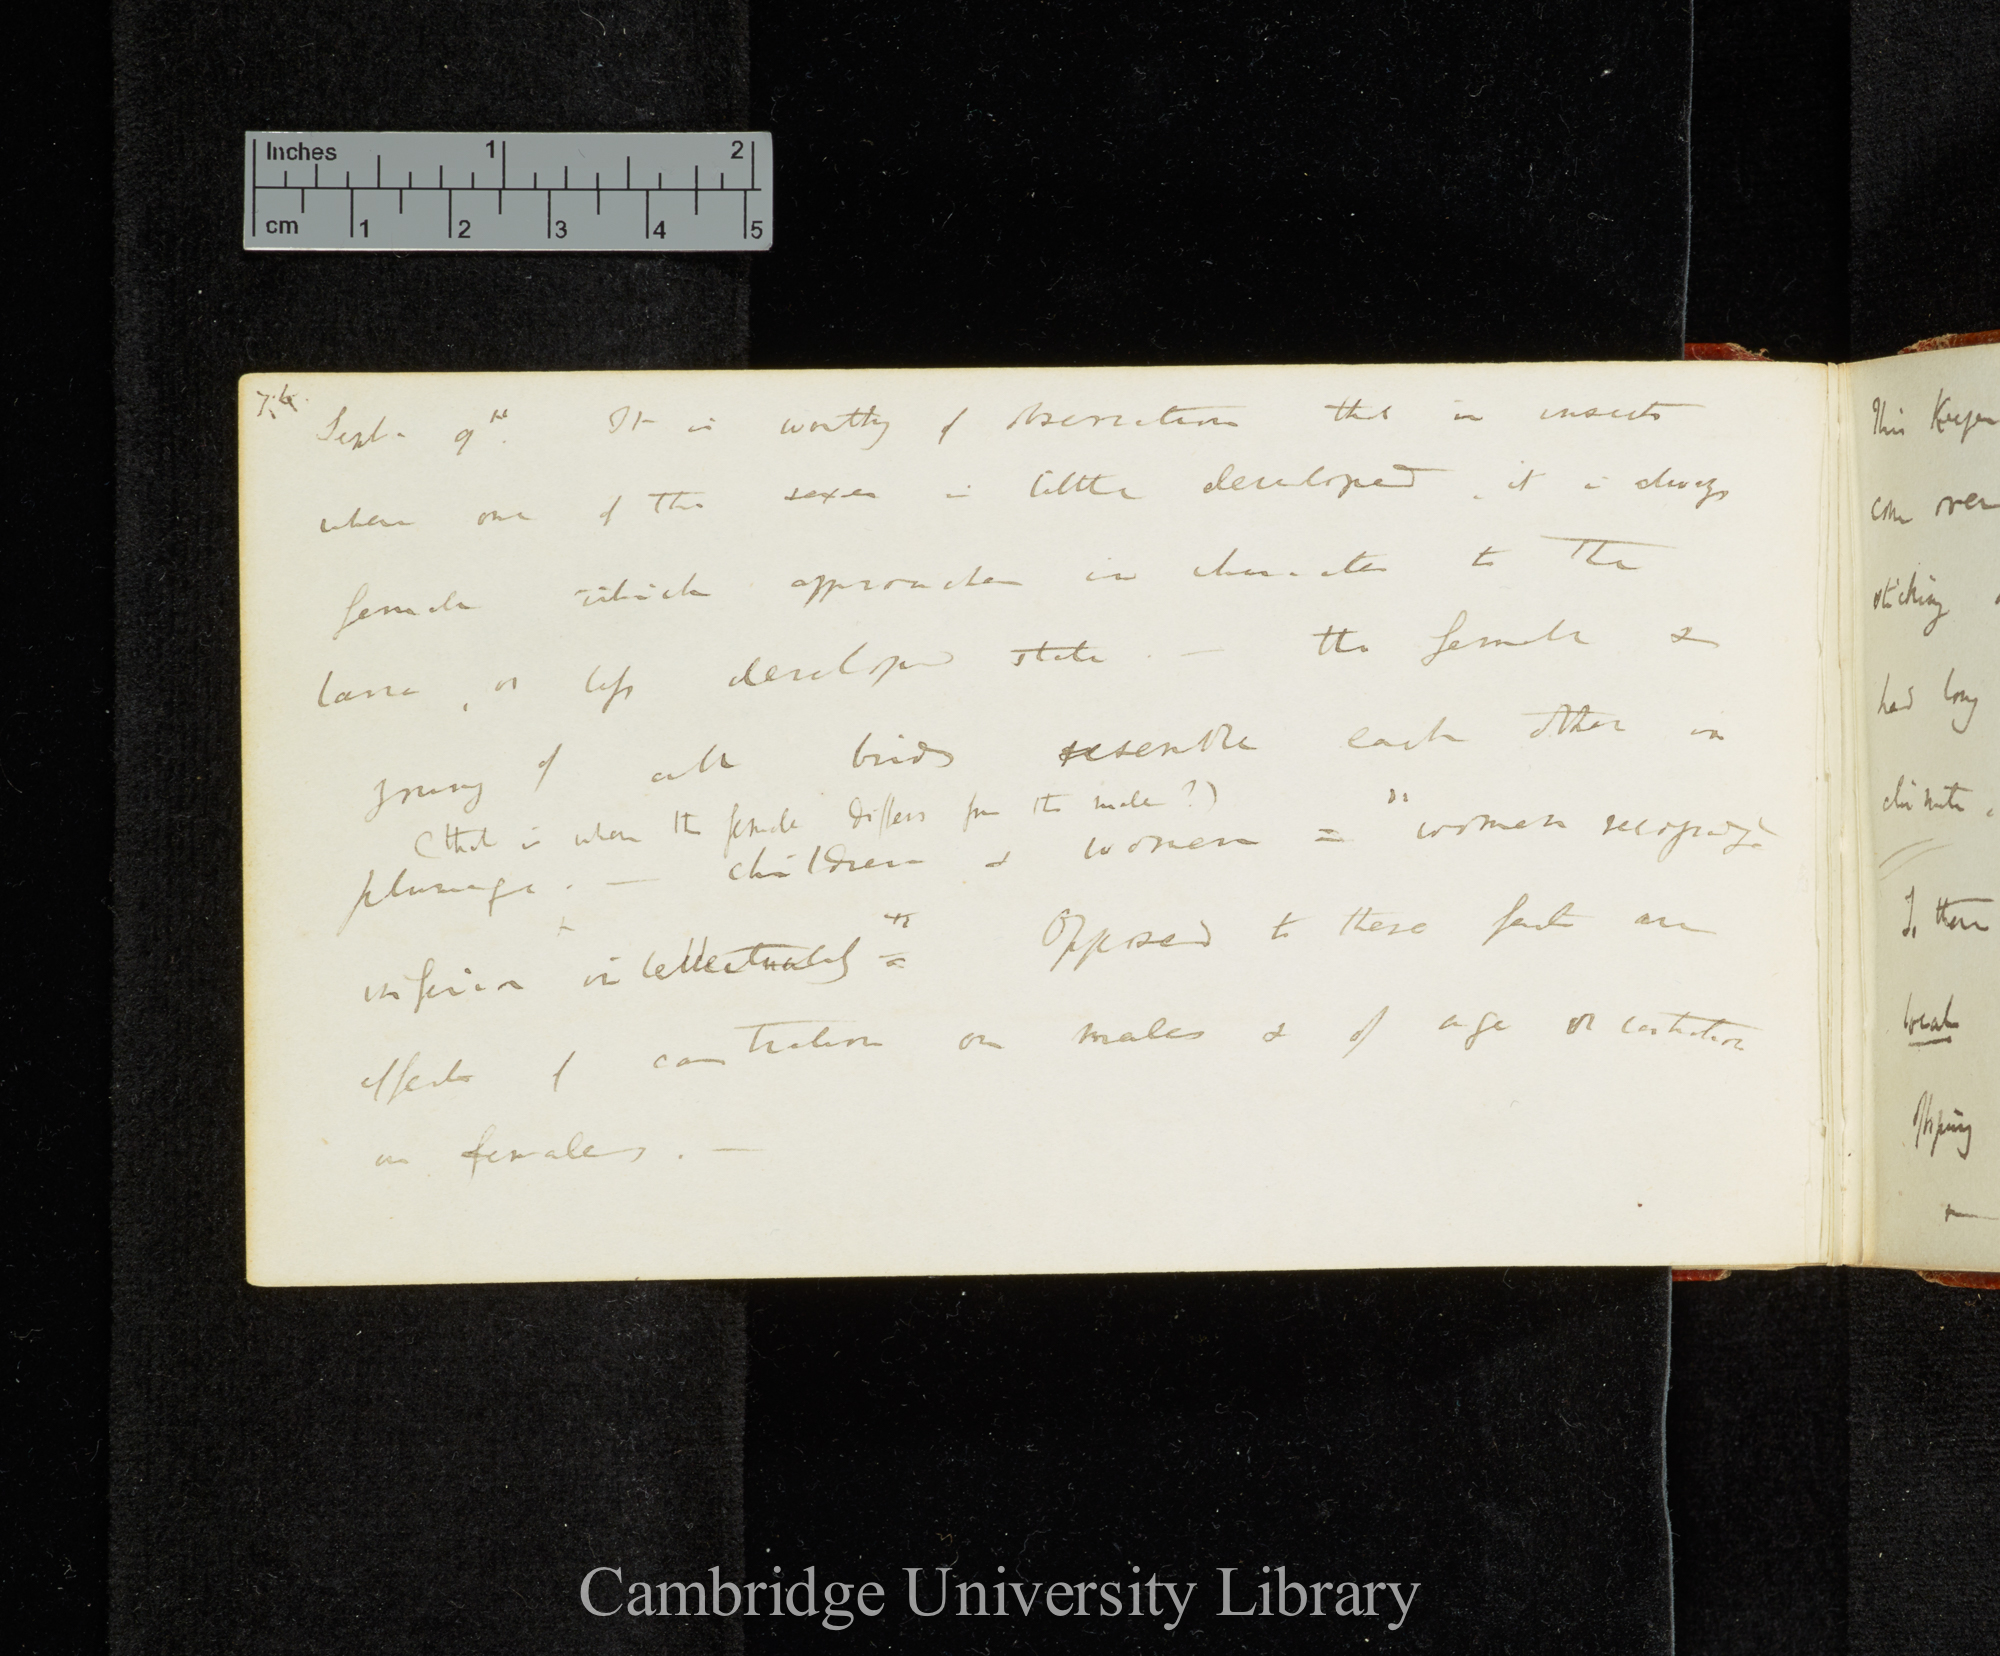 Inches 1 2
cm 1 2 3 4 5
74
Sept. 9th. It is worthy of observation that in insects
when one of the sexes is little developed, it is always
female which approaches in character to the
larva, or less developed state. — the female &
young of all birds resemble each other in
(that is when the female differs from the male?)
plumage. — children & women = "women recognized
inferior intellectually" = Opposed to these facts are
effects of castration on males & of age or castration
on females. —
This Keeper
come over
sticking
had long
climate,
Is there
local
offspring
Cambridge University Library